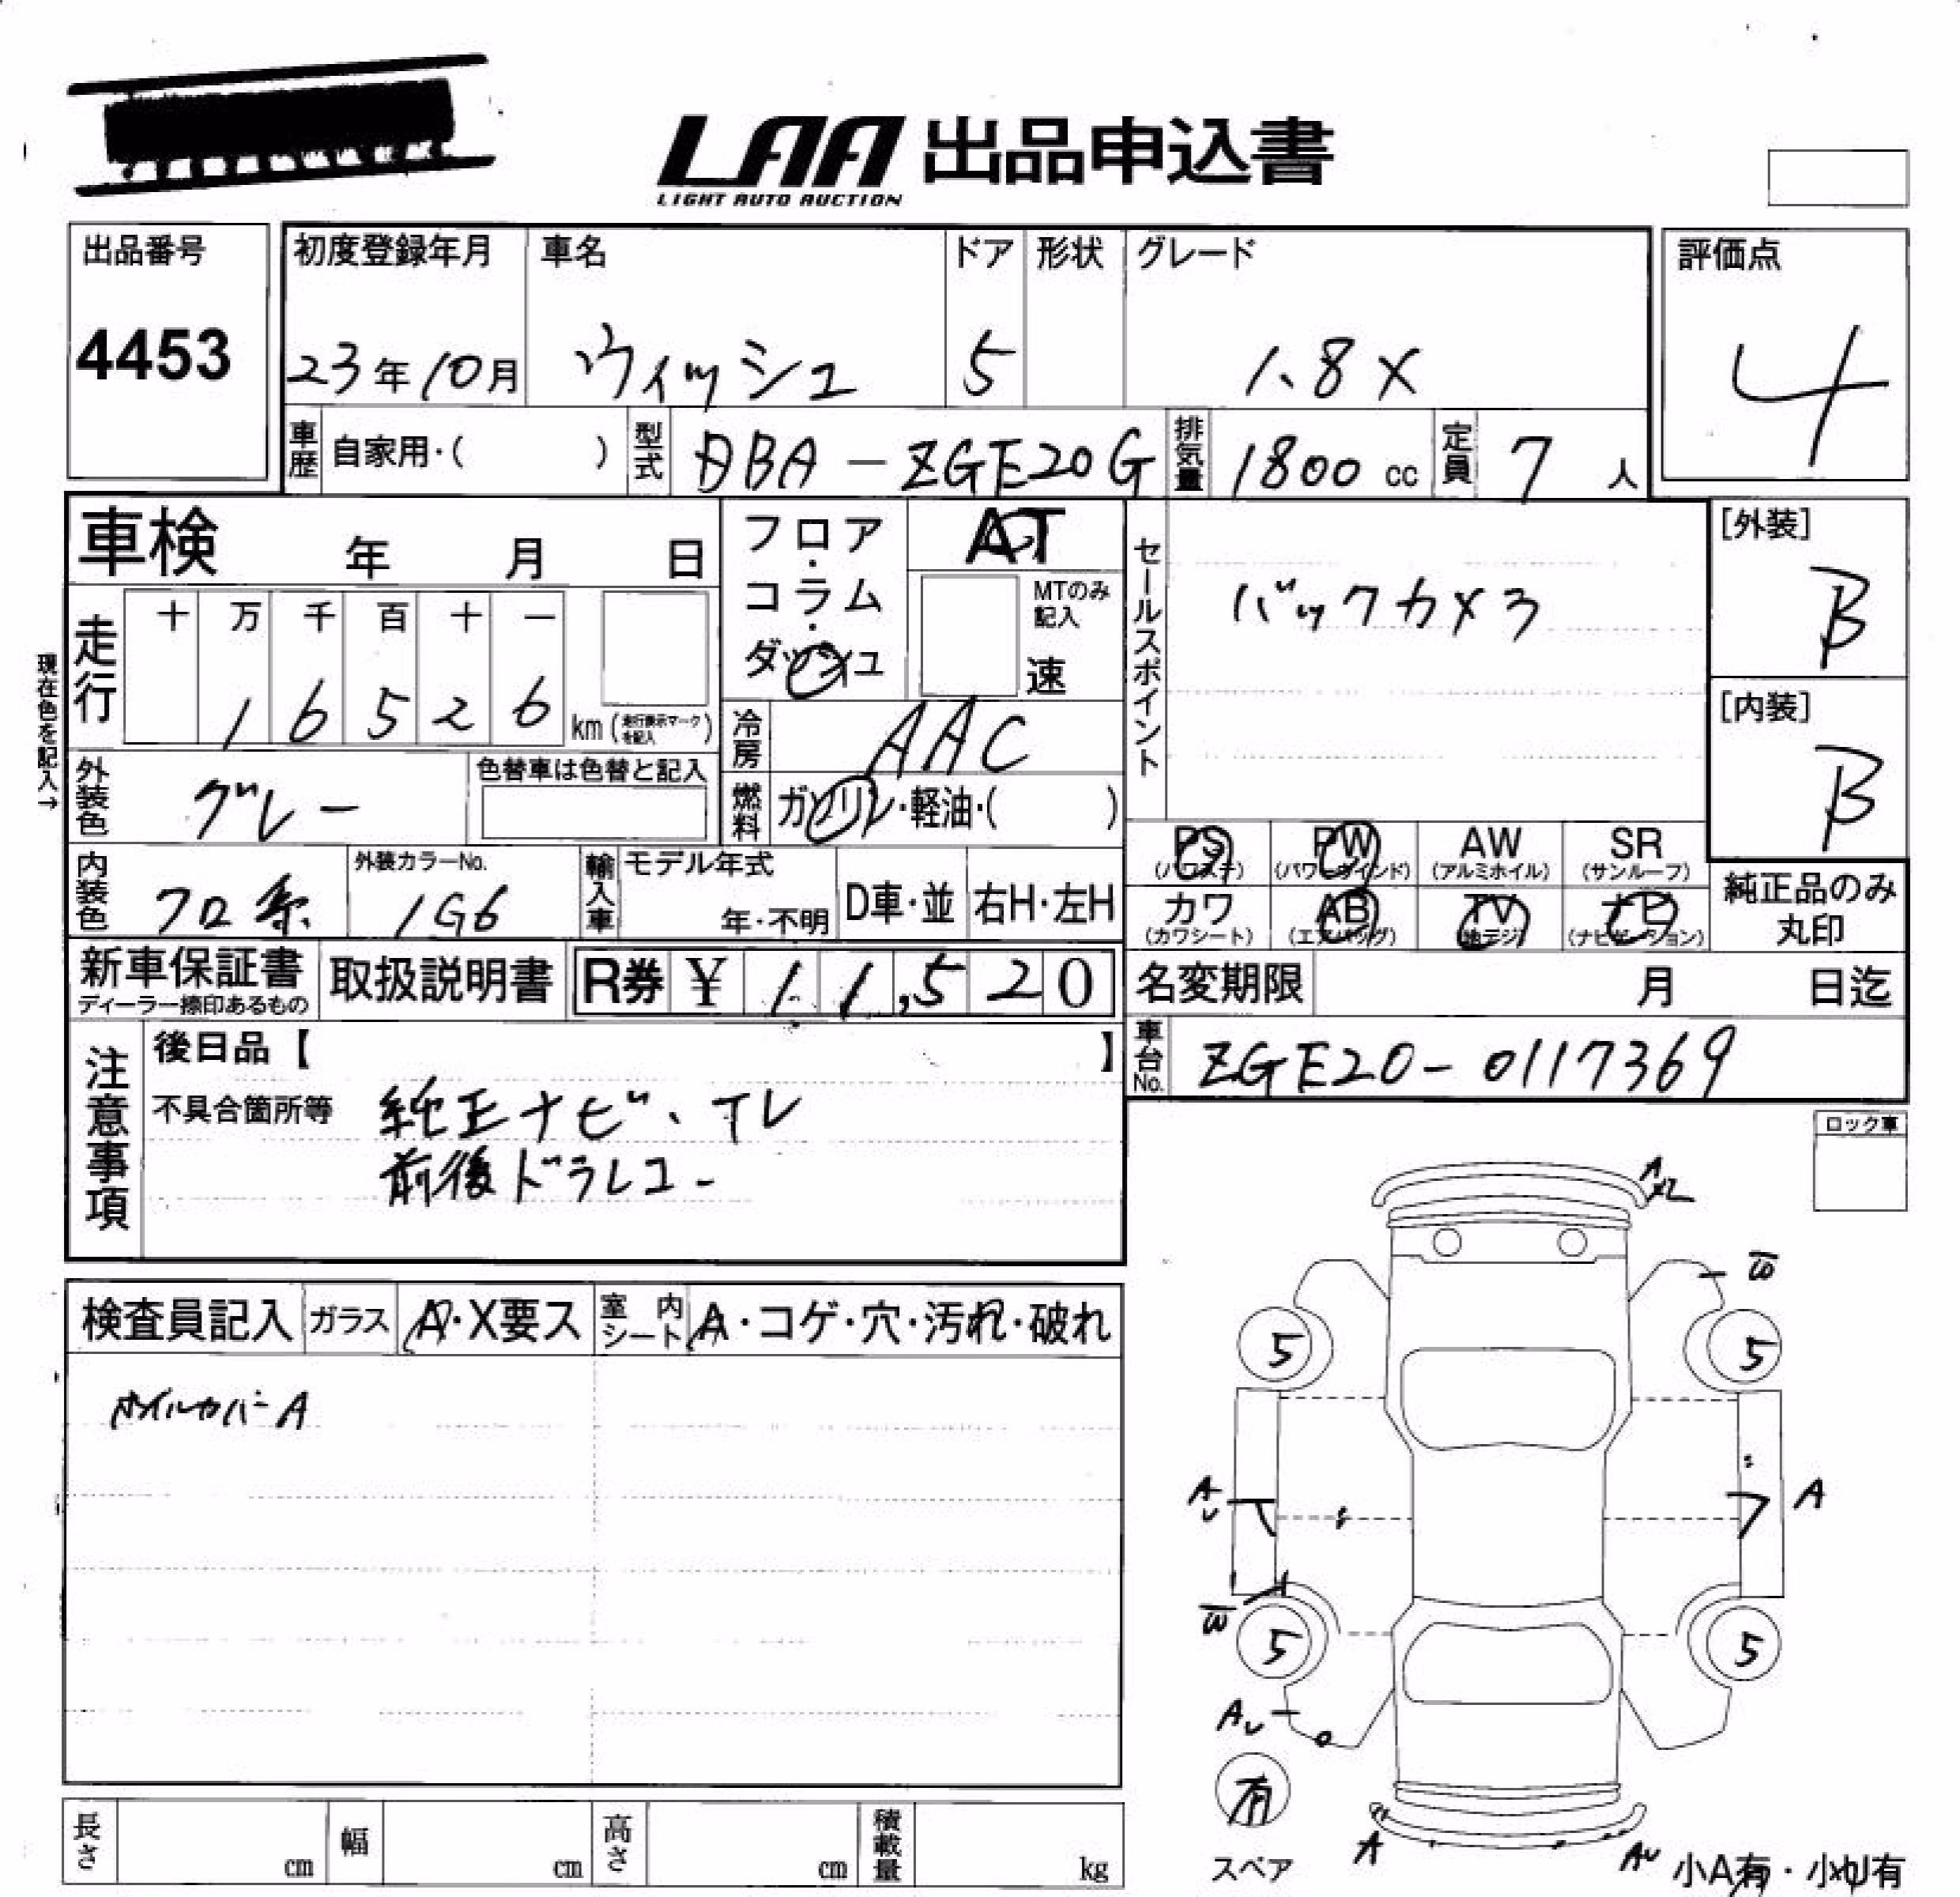 LAA 出品申込書
LIGHT AUTO AUCTION
出品番号 初度登録年月 車名 ドア 形状 グレード 評価点
4453 23年10月 ウィッシュ 5 1.8X 4
車歴 自家用・( ) 型式 DBA-ZGE20G 排気量 1800 cc 定員 7 人
車検 年 月 日 フロア・コラム・ダッシュ AT セールスポイント [外装]
MTのみ記入 速 バックカメラ B
現在色を記入→
走行 十 万 千 百 十 一
1 6 5 2 6 km (走行表示マークを記入) [内装]
冷房 AAC B
外装色 グレー 色替車は色替と記入 燃料 ガソリン・軽油・( )
PS PW AW SR
(パワステ) (パワーウインド) (アルミホイル) (サンルーフ)
内装色 クロ系 外装カラーNo. 1G6 輸入車 モデル年式 年・不明 D車・並 右H・左H
カワ AB TV ナビ 純正品のみ
(カワシート) (エアバッグ) (地デジ) (ナビゲーション) 丸印
新車保証書 取扱説明書 R券 ¥ 11,520 名変期限 月 日迄
ディーラー捺印あるもの
注意事項 後日品【 】 車台No. ZGE20-0117369
不具合箇所等 純正ナビ、TV
前後ドラレコー
ロック車
検査員記入 ガラス A・X要ス 室内シート A・コゲ・穴・汚れ・破れ
ホイルカバーA
A
W
5 5
AU A
W
5 5
AU
有
スペア A AU 小A有・小U有
長さ cm 幅 cm 高さ cm 積載量 kg